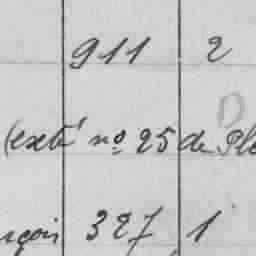 911 2
(exté nº 25 de Ple
nçois 327 1